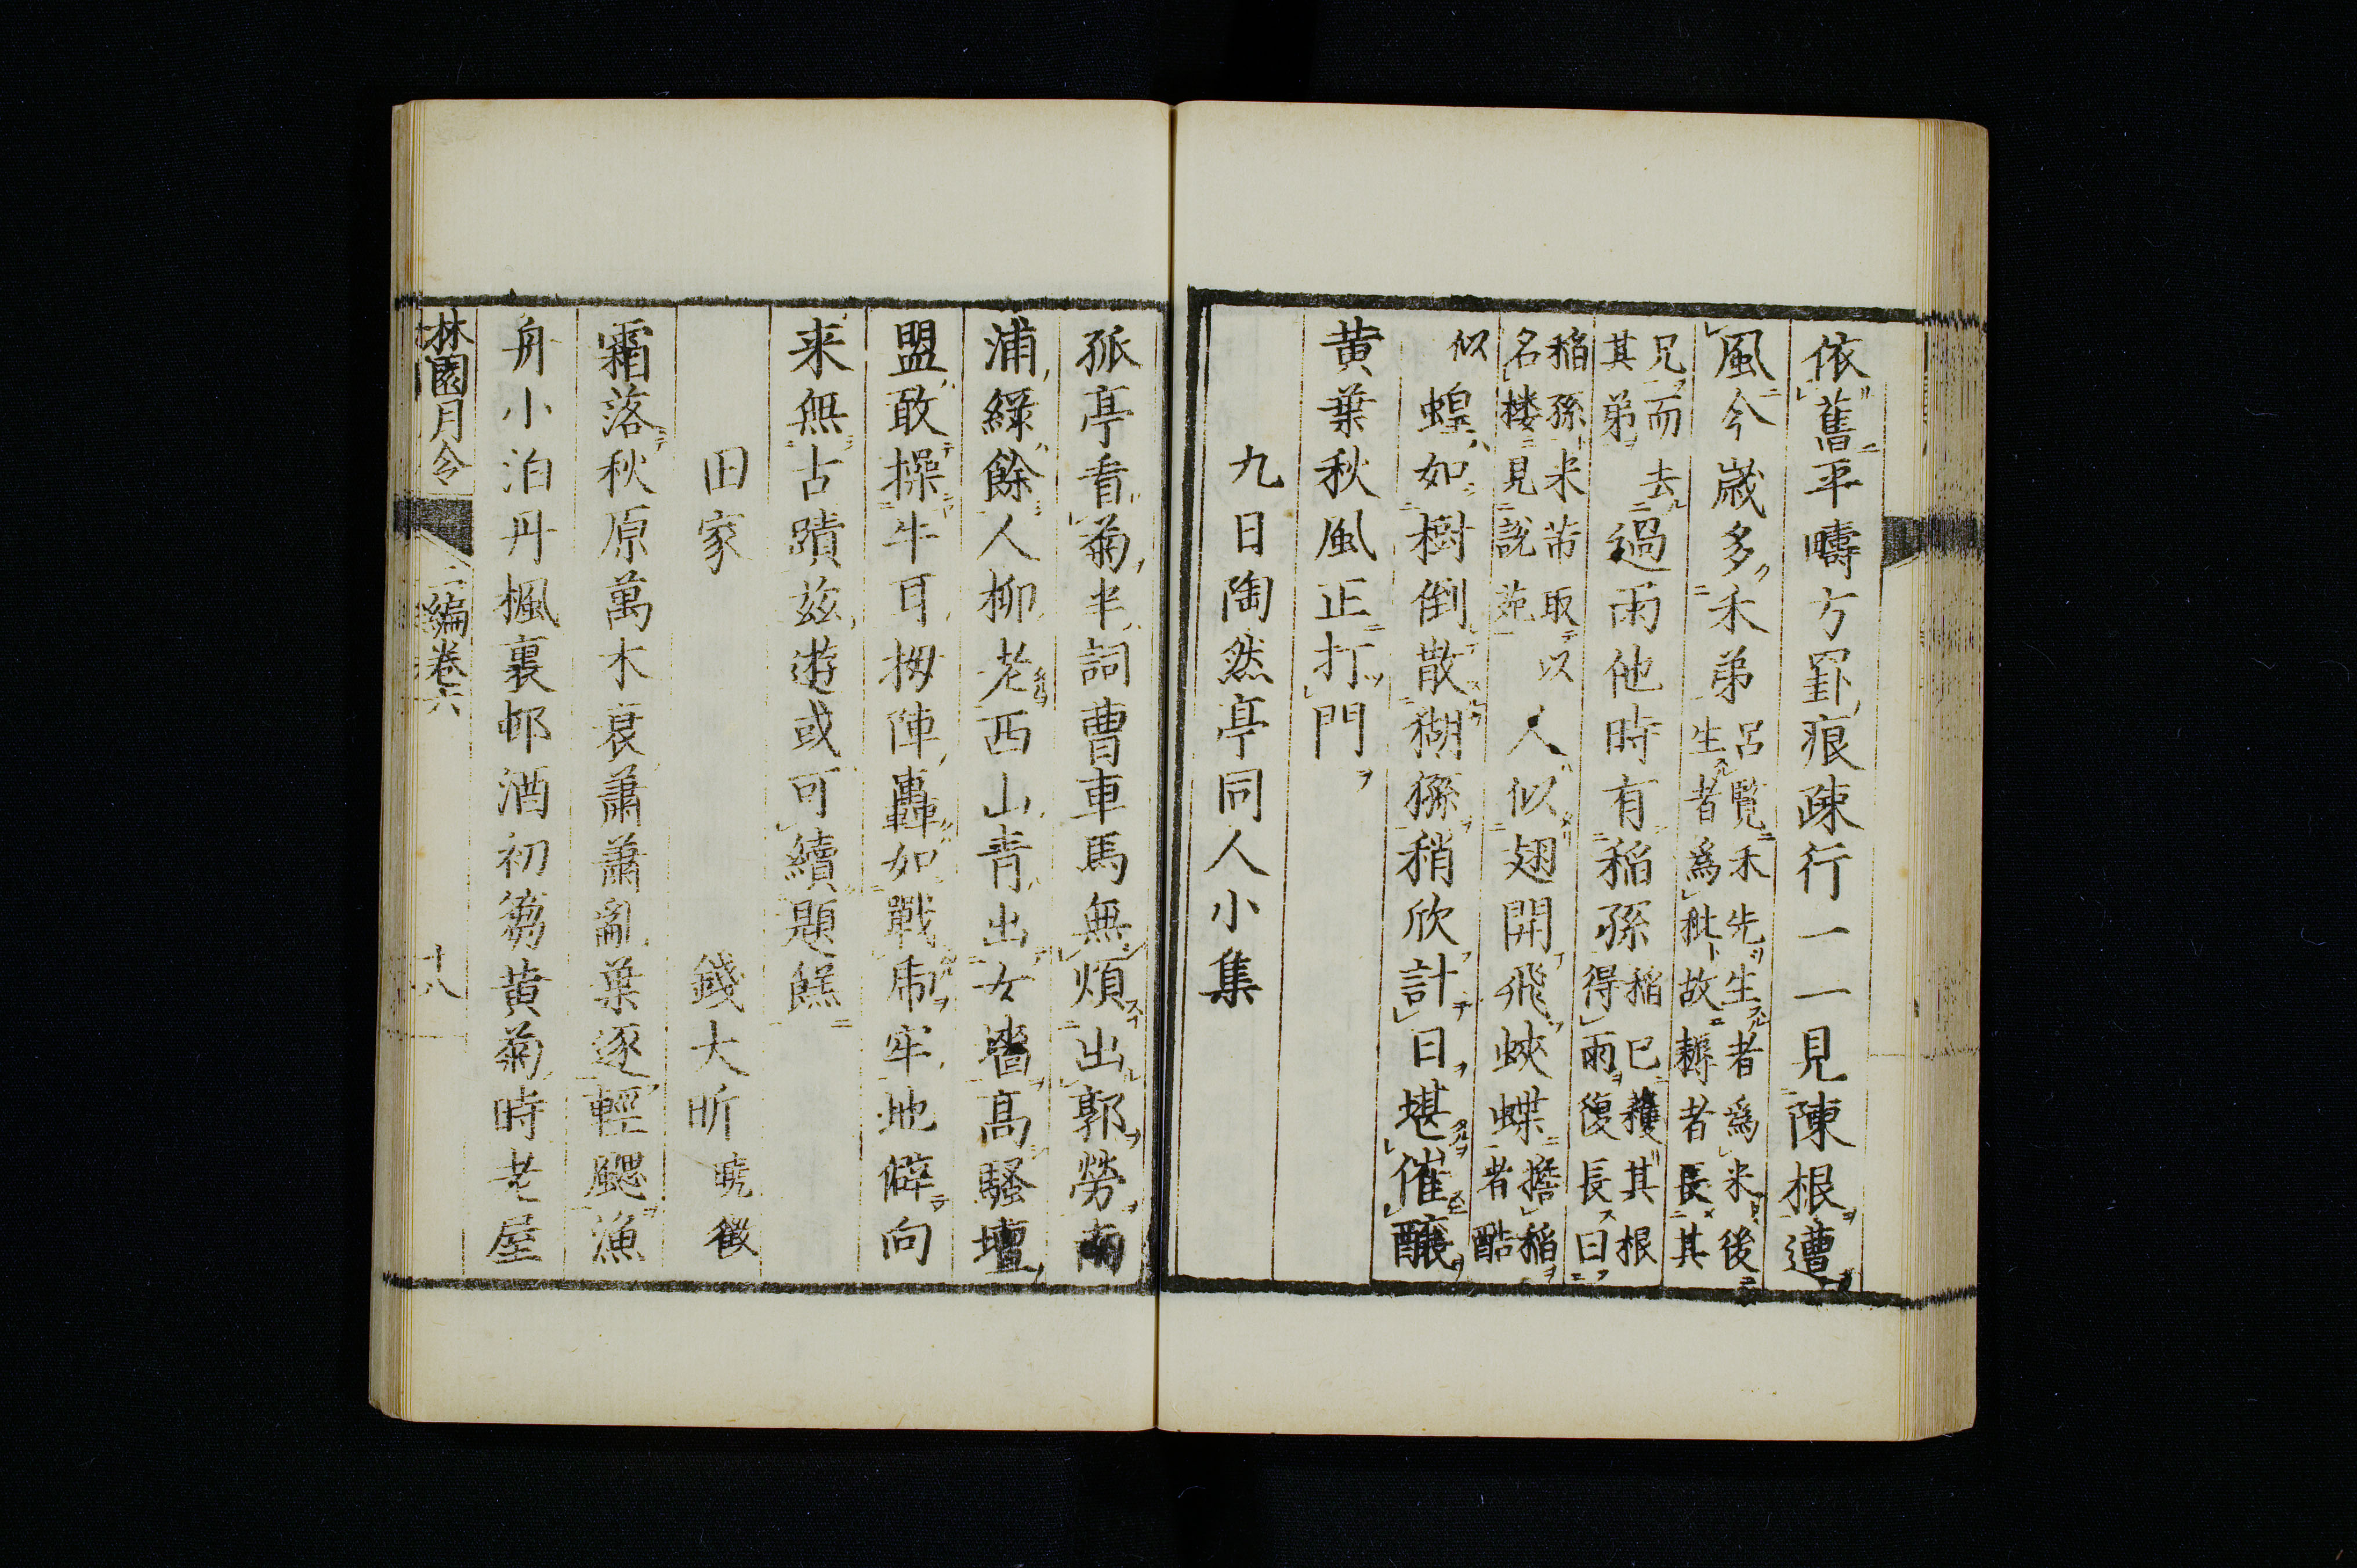 依舊平疇方罫痕疎行一一見陳根遭
風今歲多禾弟呂覧禾先生者爲米後生者爲秕故耨者長其
兄而去其弟過雨他時有稲孫稲已穫其根得雨復長曰
稲孫米芾取以名楼見說苑人似翅開飛蛺蝶擔稲者酷
似蝗如樹倒散猢猻稍欣計日堪催釀
黄葉秋風正打門
九日陶然亭同人小集
孤亭看菊半詞曹車馬無煩出郭勞南
浦緑餘人柳老西山青出女墻髙騷壇
盟敢操牛耳拇陣轟如戰虎牢地僻向
来無古蹟茲遊或可續題餻
田家 錢大昕 曉徵
霜落秋原萬木衰蕭蕭亂葉逐輕颸漁
舟小泊丹楓裏邨酒初篘黄菊時老屋
林園月令 二編卷六 十八